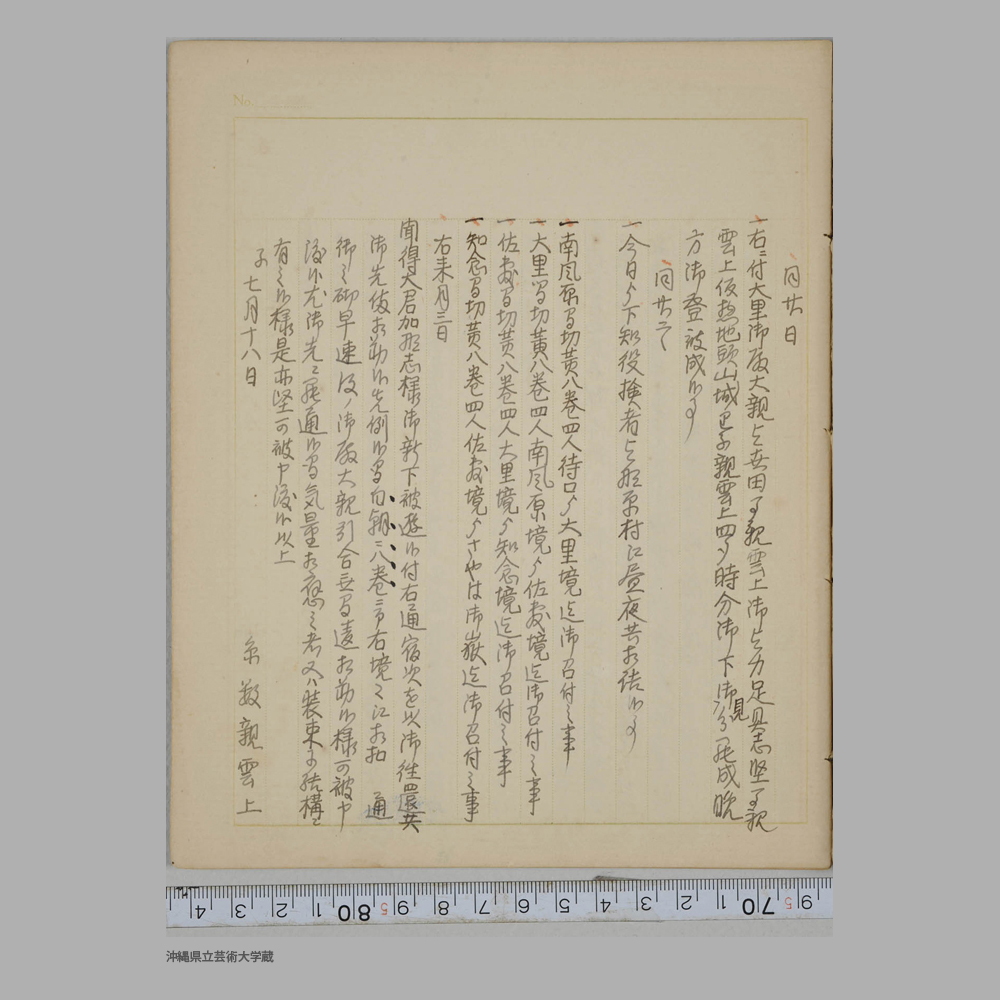 同廿日
一右ニ付大里御殿大親与世田了親雲上御与力足具志堅了親
雲上仮惣地頭山城里之子親雲上四ツ時分御下御見分被成晩
方御登被成候事
同廿二
一今日ゟ下知役検者与那原村江昼夜共相詰候事
一南風原間切黄八巻四人待口ゟ大里境迄御召付之事
一大里間切黄八巻四人南風原境ゟ佐敷境迄御召付之事
一佐敷間切黄八巻四人大里境ゟ知念境迄御召付之事
一知念間切黄八巻四人佐敷境ゟさやは御嶽迄御召付之事
右来月三日
聞得大君加那志様御新下被遊候付右通宿次を以御往還共
御先備相勤候先例候間 八巻ニ而右境々江相扣 通
御之砌早速 御殿大親引合無間違相勤候様可被申
渡候尤御先々罷通候間気量相応之者又ハ装束等結構
有之候様是亦堅可被申渡候以上
子七月十八日
糸数親雲上
No.
4 3 2 1 80 9 8 7 6 5 4 3 2 1 70 9
沖縄県立芸術大学蔵